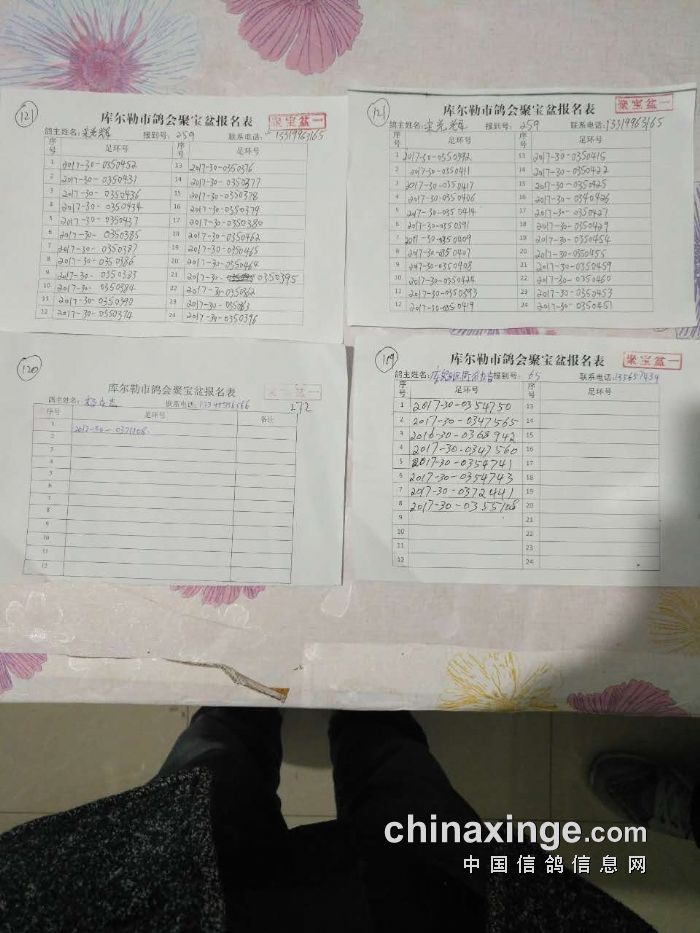 121
库尔勒市鸽会聚宝盆报名表
聚宝盆一
鸽主姓名: 报到号: 259 联系电话: 13319963165
序号 足环号 序号 足环号
1 2017-30-0350452 13 2017-30-0350376
2 2017-30-0350431 14 2017-30-0350377
3 2017-30-0350436 15 2017-30-0350378
4 2017-30-0350434 16 2017-30-0350379
5 2017-30-0350437 17 2017-30-0350380
6 2017-30-0350385 18 2017-30-0350462
7 2017-30-0350387 19 2017-30-0350465
8 2017-30-0350386 20 2017-30-0350464
9 2017-30-0350383 21 2017-30-0350395
10 2017-30-0350384 22 2017-30-0350362
11 2017-30-0350390 23 2017-30-0350363
12 2017-30-0350374 24 2017-30-0350396
121
库尔勒市鸽会聚宝盆报名表
聚宝盆一
鸽主姓名: 报到号: 259 联系电话: 13319963165
序号 足环号 序号 足环号
1 2017-30-0350392 13 2017-30-0350415
2 2017-30-0350411 14 2017-30-0350422
3 2017-30-0350417 15 2017-30-0350425
4 2017-30-0350406 16 2017-30-0350426
5 2017-30-0350414 17 2017-30-0350427
6 2017-30-0350391 18 2017-30-0350429
7 2017-30-0350409 19 2017-30-0350454
8 2017-30-0350407 20 2017-30-0350455
9 2017-30-0350408 21 2017-30-0350459
10 2017-30-0350424 22 2017-30-0350460
11 2017-30-0350393 23 2017-30-0350453
12 2017-30-0350419 24 2017-30-0350451
120
库尔勒市鸽会聚宝盆报名表
聚宝盆一
鸽主姓名: 联系电话: 272
序号 足环号 备注
1 2017-30-0371108
2
3
4
5
6
7
8
9
10
11
12
109
库尔勒市鸽会聚宝盆报名表
聚宝盆一
鸽主姓名: 报到号: 65 联系电话:
序号 足环号 序号 足环号
1 2017-30-0354750 13
2 2017-30-0347565 14
3 2016-30-0368942 15
4 2017-30-0347560 16
5 2017-30-0354741 17
6 2017-30-0354743 18
7 2017-30-0372441 19
8 2017-30-0355108 20
9 21
10 22
11 23
12 24
chinaxinge.com
中国信鸽信息网